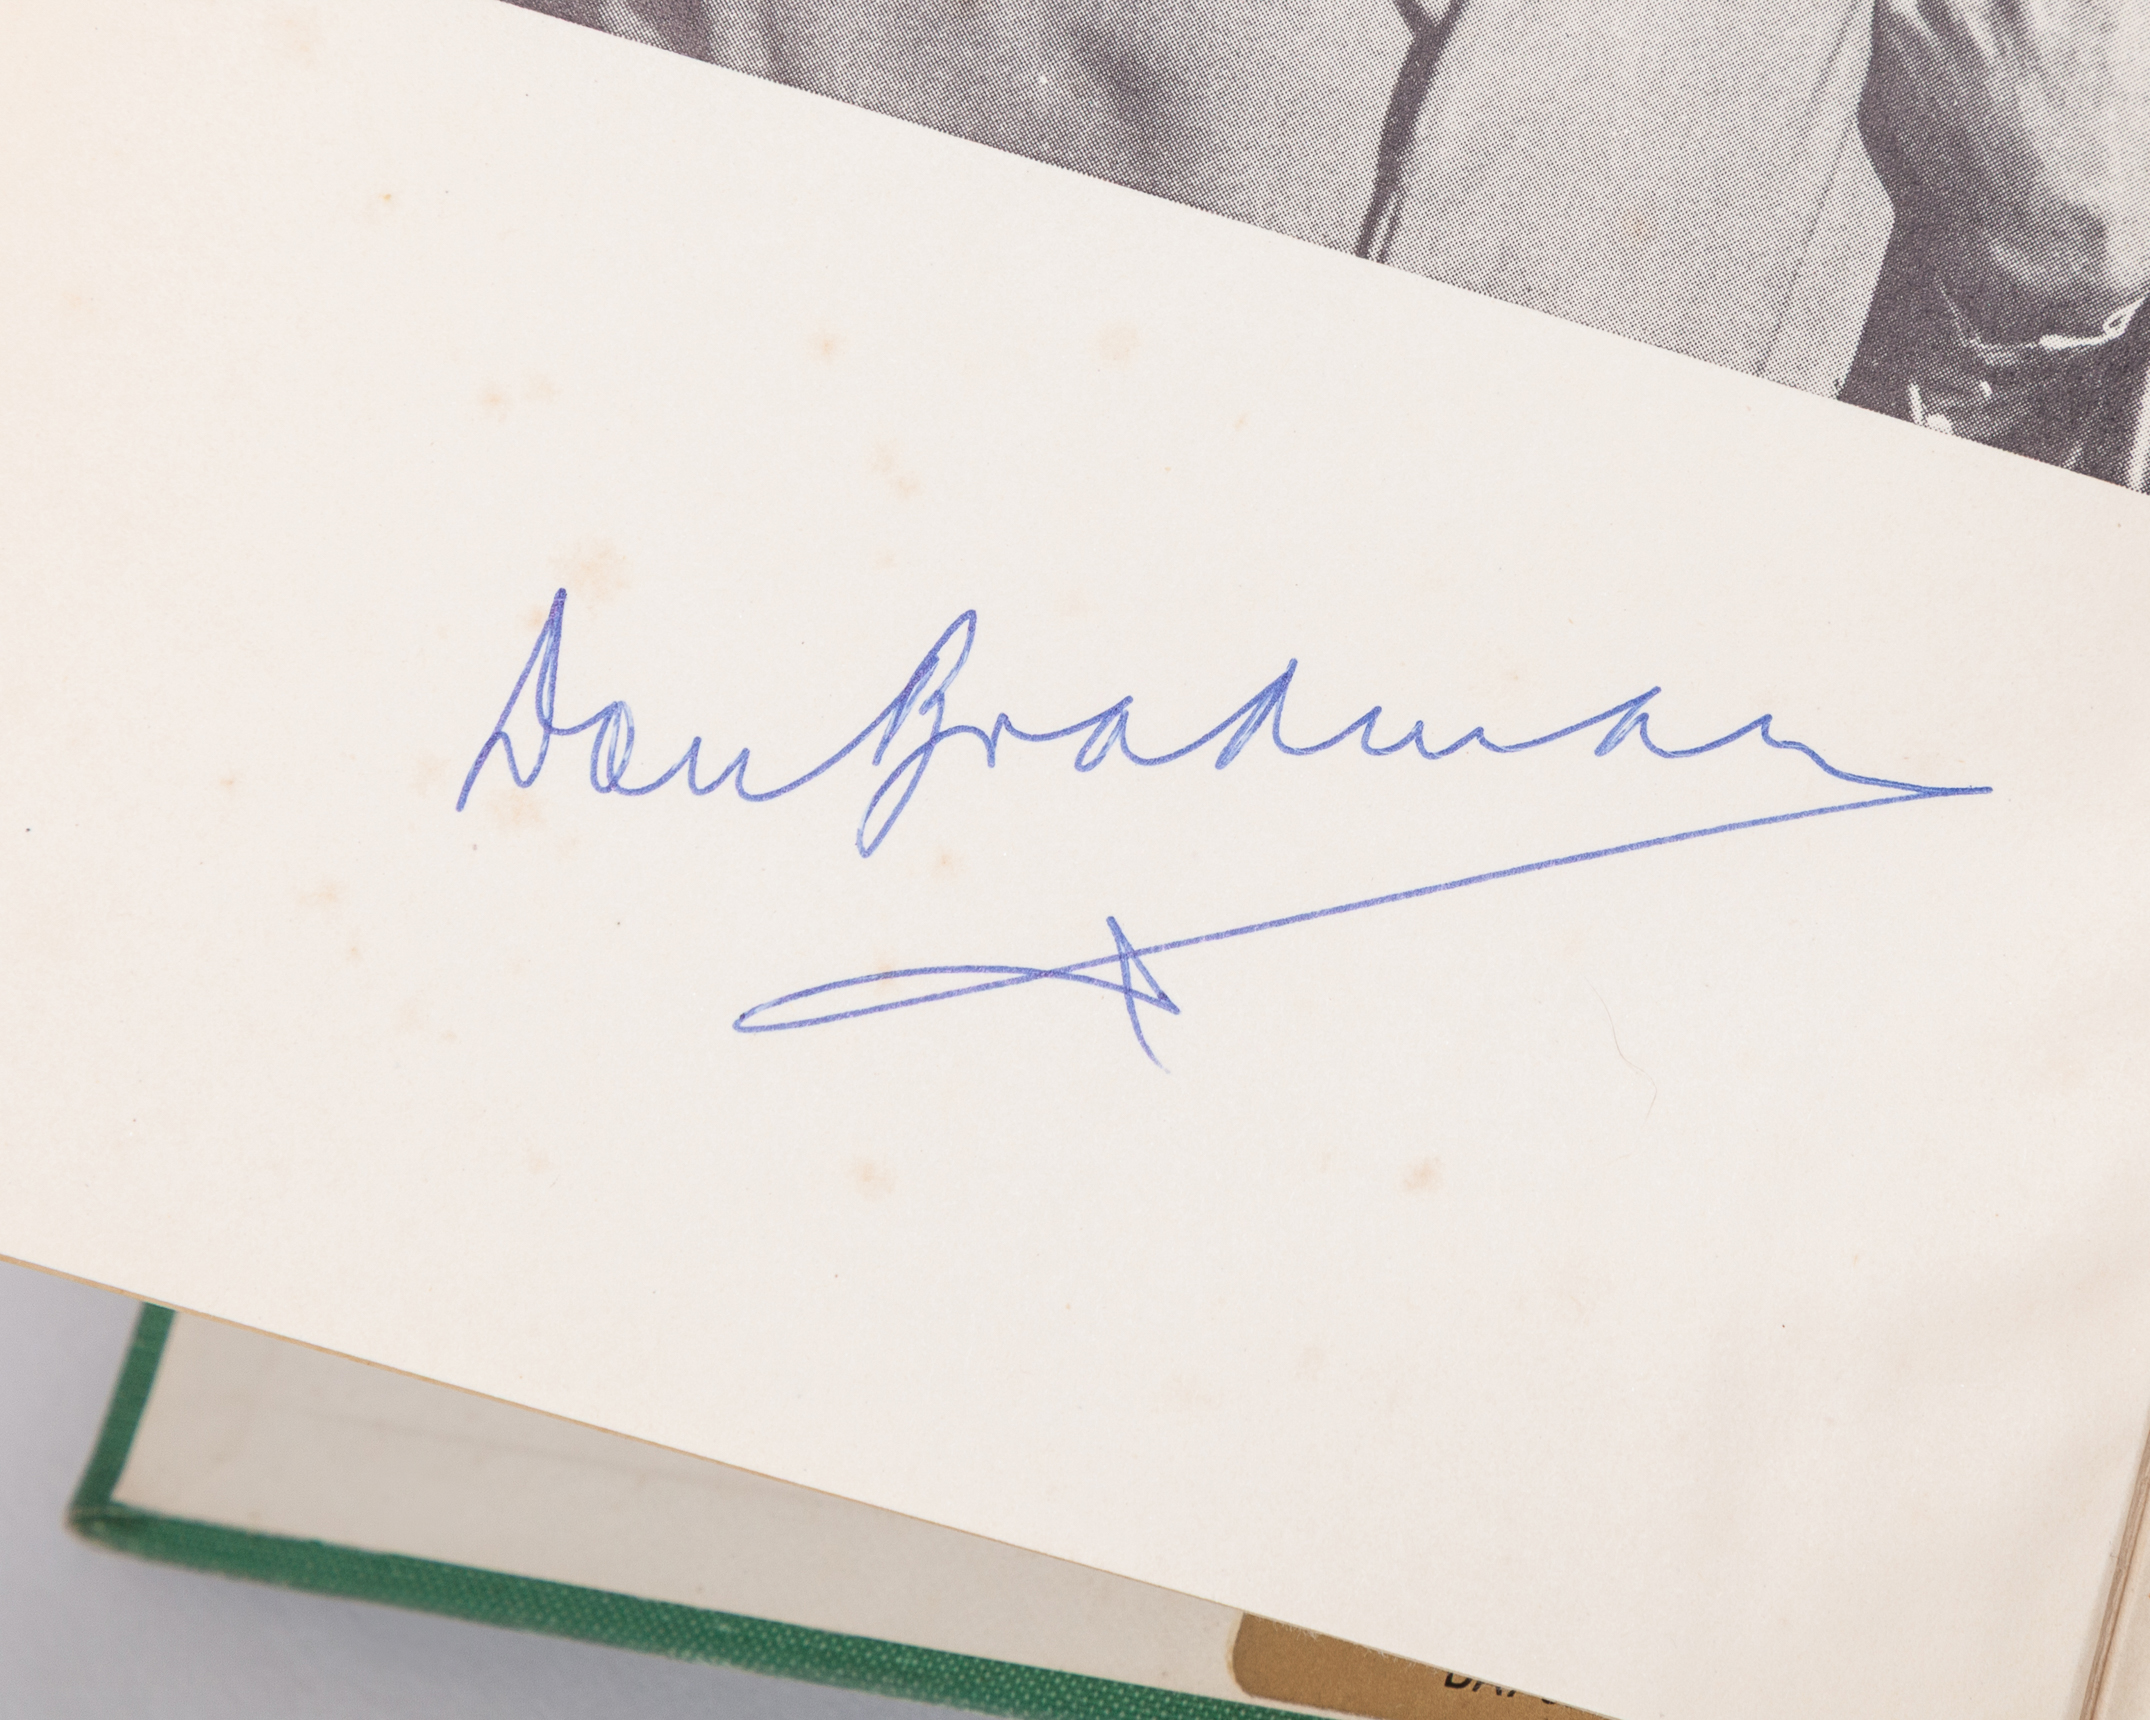 Don Bradman